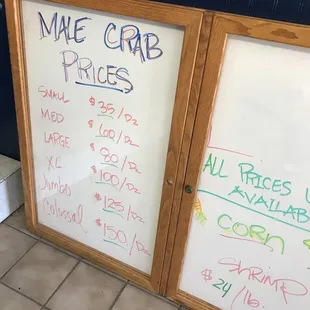 MALE CRAB
PRICES
SMALL $35/Dz
MED $60/Dz
LARGE $80/Dz
XL $100/Dz
Jumbo $125/Dz
Colossal $150/Dz
ALL PRICES
AVAILAB
CORN
SHRIMP
$24/lb.